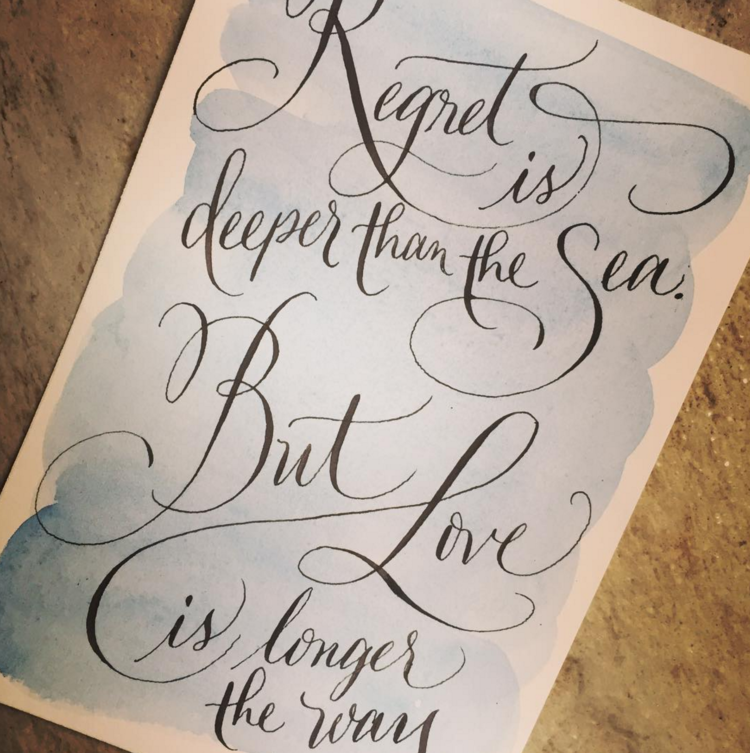 Regret
is
deeper than the Sea.
But
Love
is longer
the way